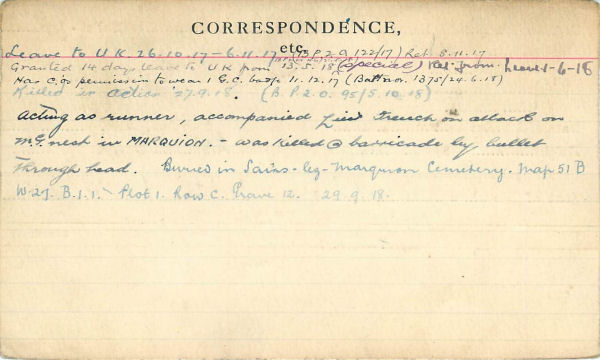 CORRESPONDENCE,
etc.
Leave to U.K. 26.10.17 - 6.11.17 (B.P.2.O 122/17) Ret. 8.11.17
Granted 14 days leave to UK from 13.5.18 (Special) Ret. from Leave 1-6-18
Has C.O's permission to wear 1 G.C. badge 11.12.17 (Battn or. 1375/24.6.18)
Killed in action 27.9.18. (B.P.2.O. 95/5.10.18)
Acting as runner, accompanied Lieut French on attack on
M.G. nest in MARQUION. - was killed @ barricade by bullet
through head. Buried in Sains-lez-Marquion Cemetery. Map 51 B
W.27. B.1.1. Plot 1. Row C. Grave 12. 29.9.18.